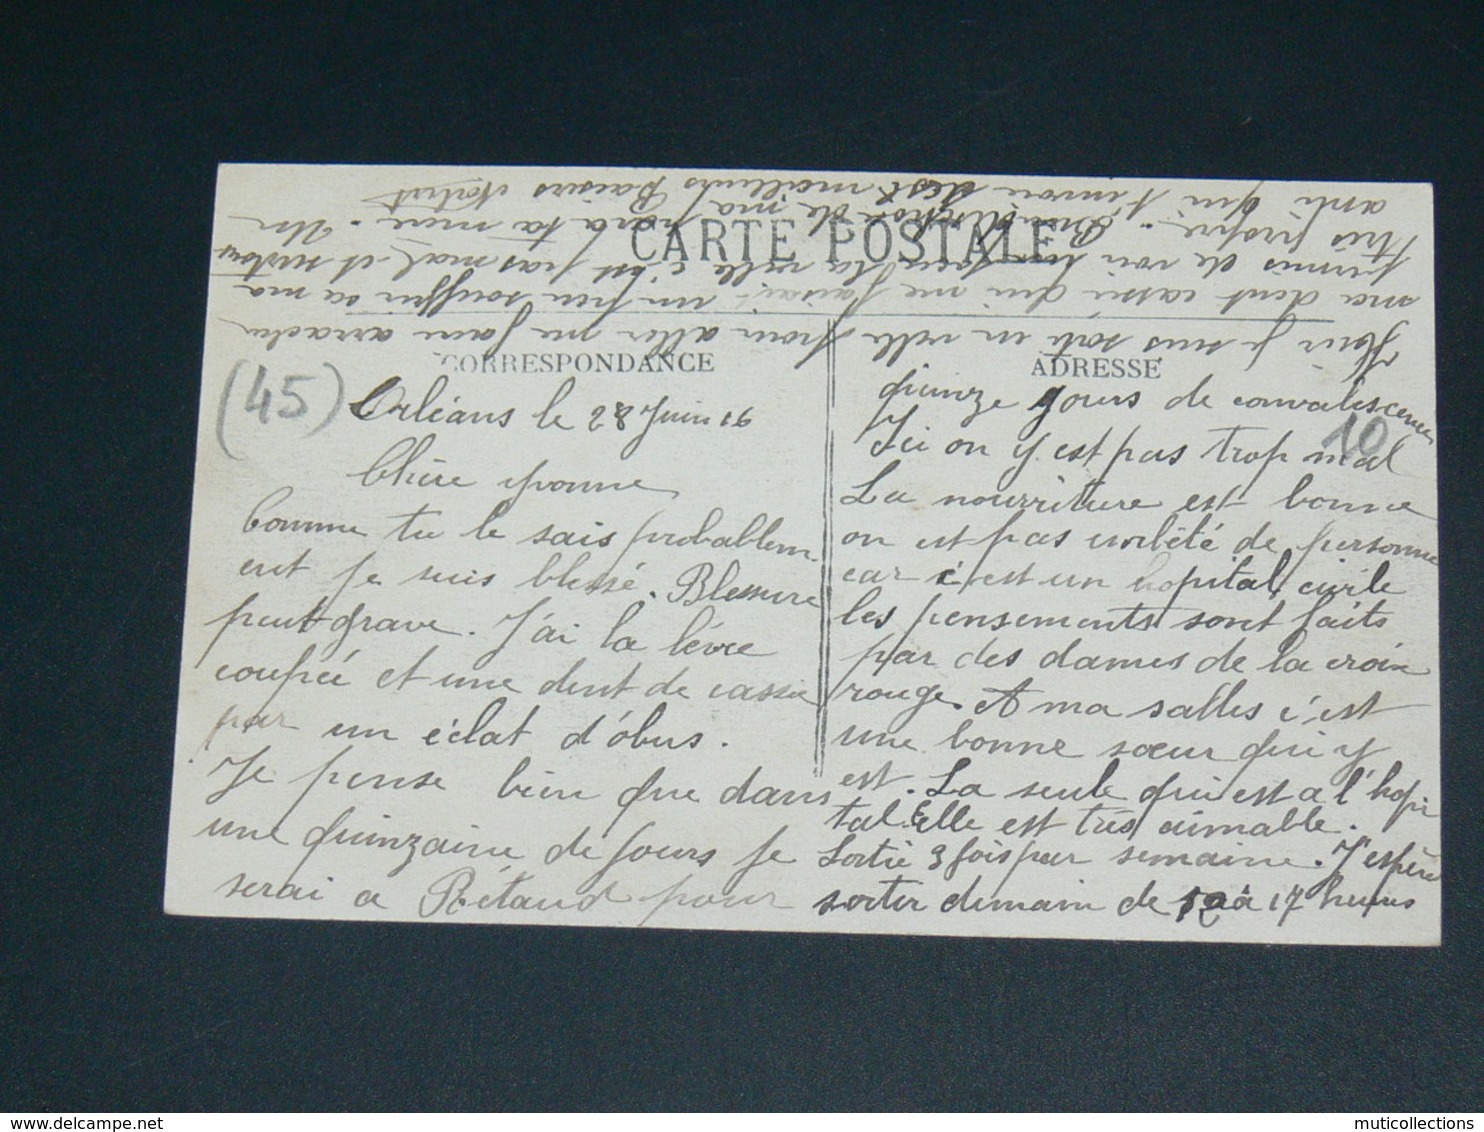 CARTE POSTALE
CORRESPONDANCE
ADRESSE
(45)
10
Orléans le 28 Juin 16
Chère yvonne
Comme tu le sais probablem-
ent je suis blessé. Blessure
peut grave. J'ai la lèvre
coupée et une dent de cassée
par un éclat d'obus.
Je pense bien que dans
une quinzaine de jours je
serai a Rétaud pour
quinze jours de convalescence
Ici on y est pas trop mal
La nourriture est bonne
on est pas embété de personne
car c'est un hopital civile
les pensements sont faits
par des dames de la croix
rouge. A ma salles c'est
une bonne sœur qui y
est. La seule qui est a l'hopi
tal. Elle est très aimable.
Sortie 3 fois par semaine. J'espère
sortir demain de 12 à 17 heures
Hier je suis sorti en ville pour aller me faire arracher
ma dent cassée qui me faisait un peu souffrir ca ma
permis de voir un peu la ville c'est pas mal et surtout
très propre. - de ma pora ta mère - Un
ami qui t'envoie de meilleurs Baisers
muticollections